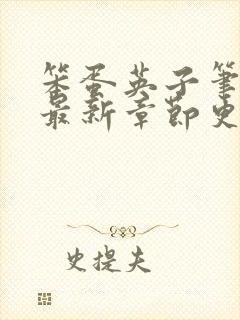 笨蛋英子筆
最新章節史
史提夫